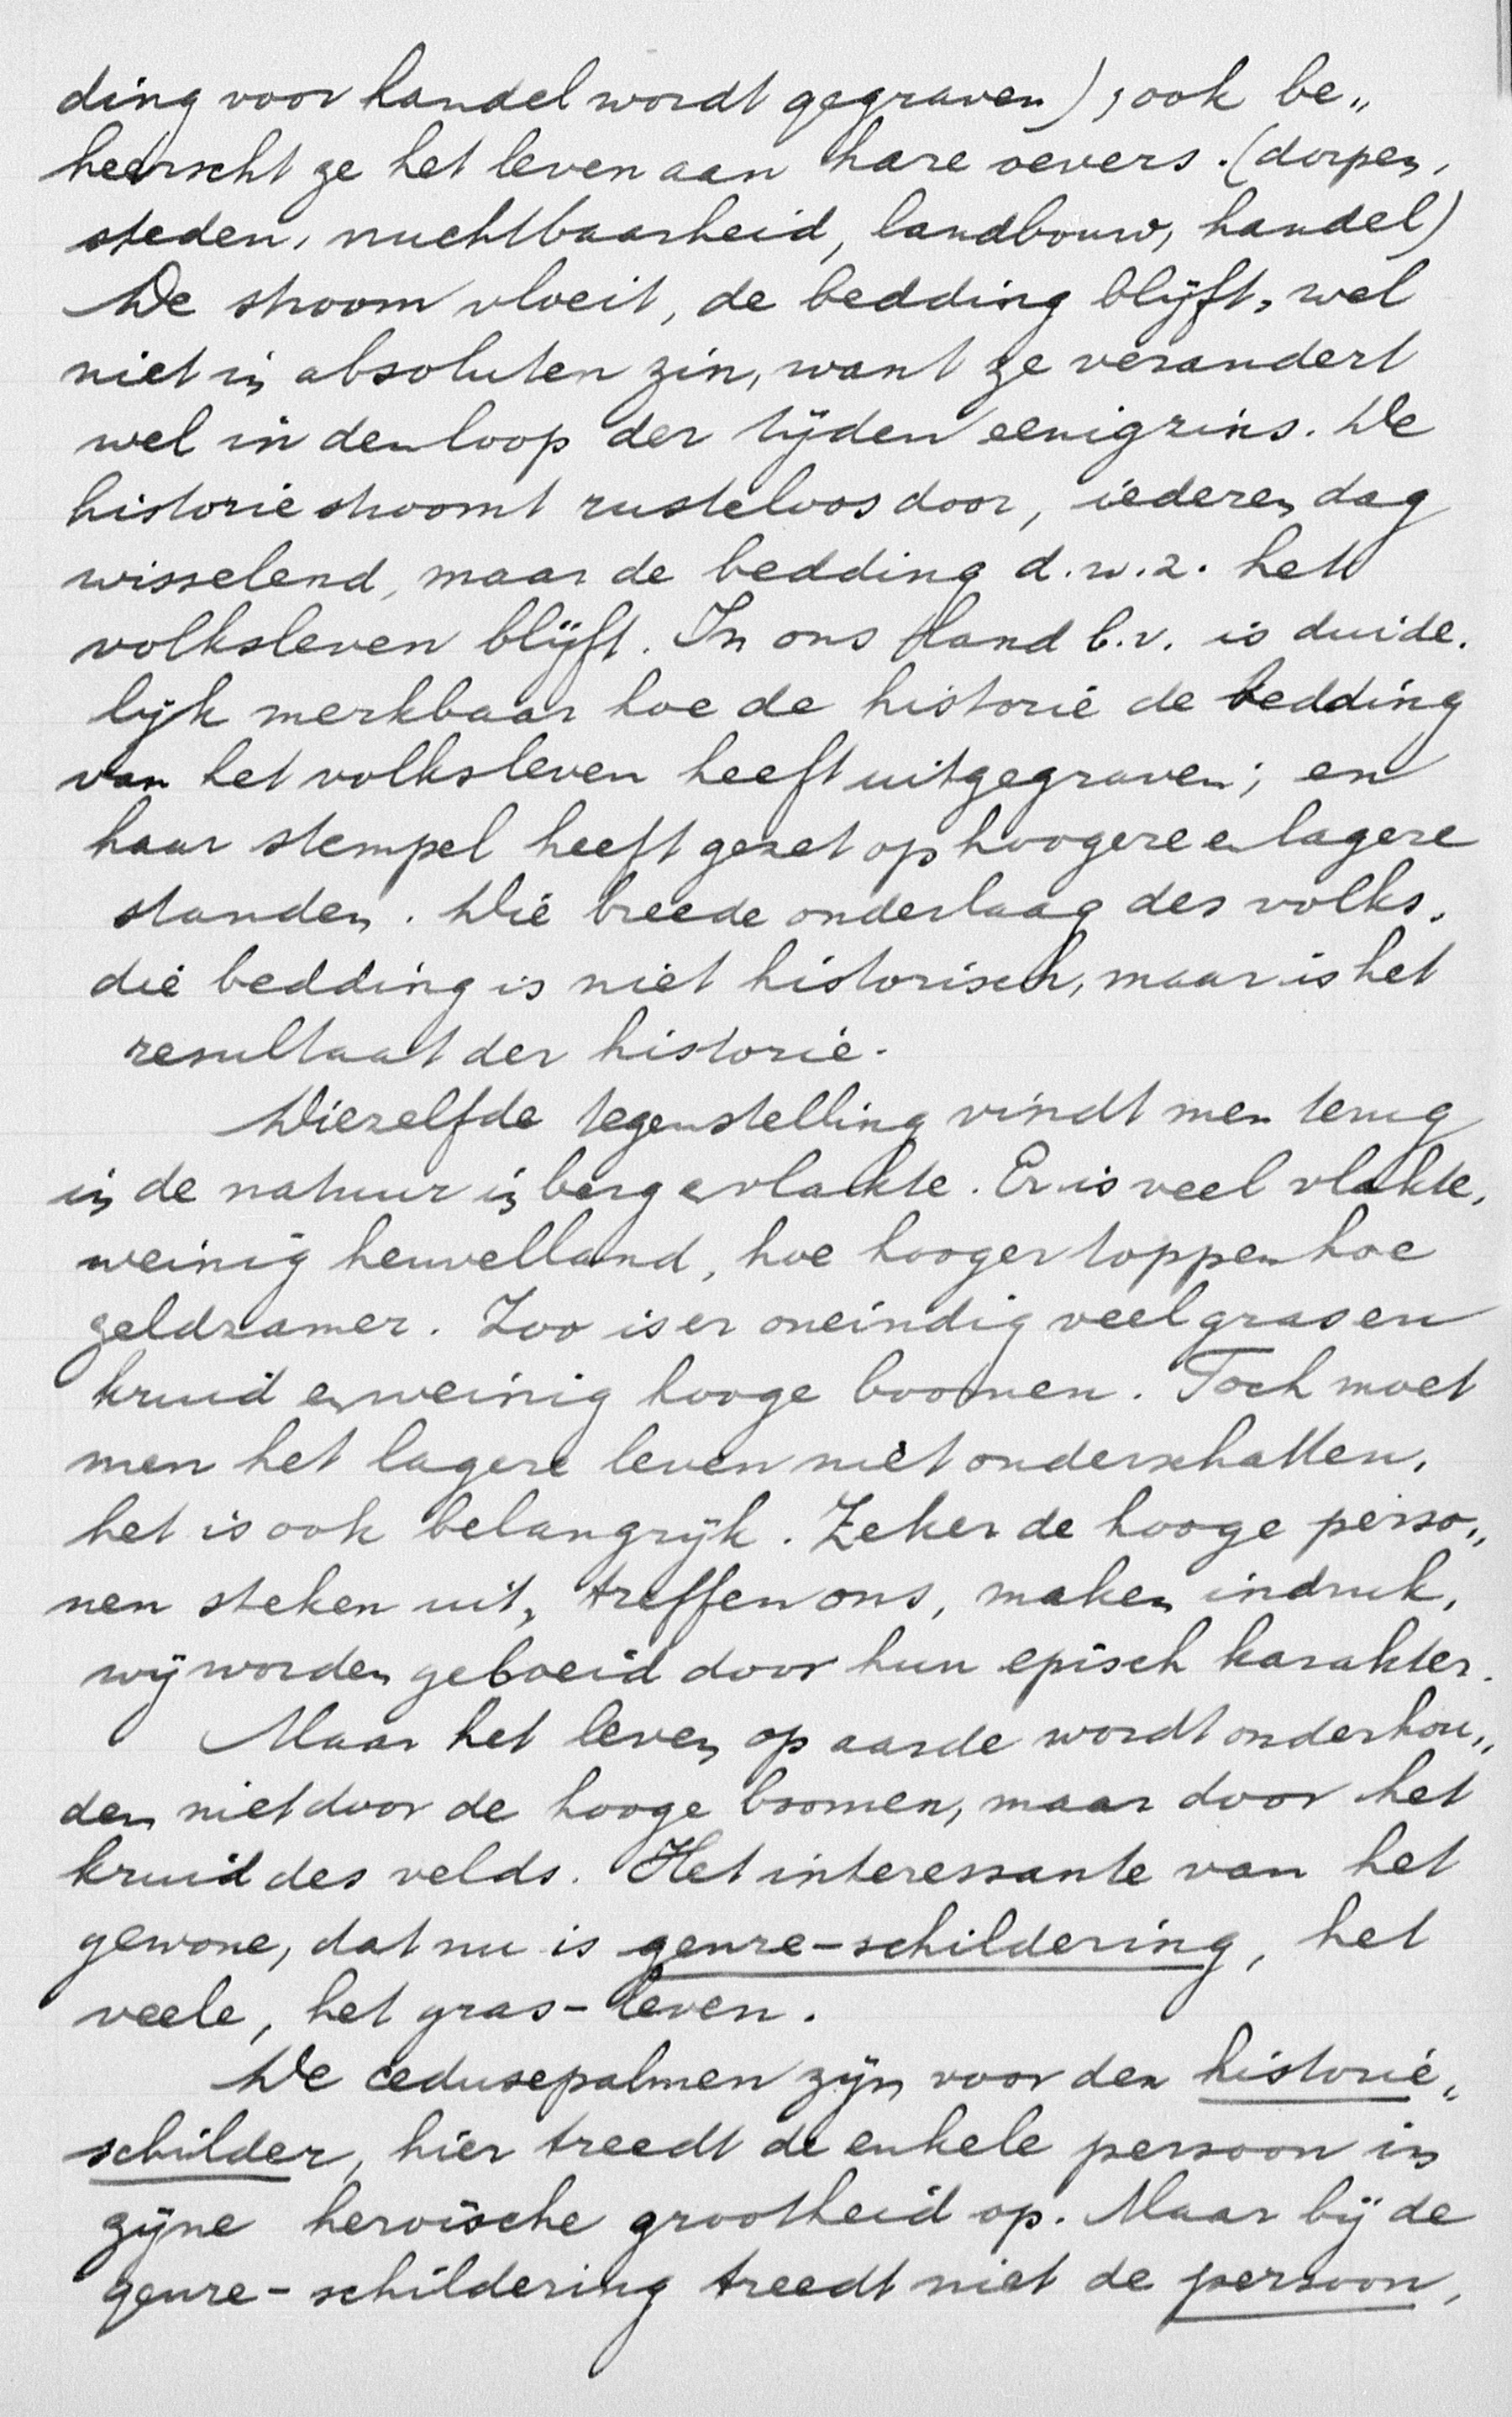 ding voor handel wordt gegraven), ook be„
heerscht ze het leven aan hare oevers. (dorpen,
steden, vruchtbaarheid, landbouw, handel)
De stroom vloeit, de bedding blijft, wel
niet in absoluten zin, want ze verandert
wel in den loop der tijden eenigzins. De
historie stroomt rusteloos door, iederen dag
wisselend, maar de bedding d.w.z. het
volksleven blijft. In ons land b.v. is duide.
lijk merkbaar hoe de historie de bedding
van het volksleven heeft uitgegraven; en
haar stempel heeft gezet op hoogere en lagere
standen. Die breede onderlaag des volks,
die bedding is niet historisch, maar is het
resultaat der historie.
Diezelfde tegenstelling vindt men terug
in de natuur in berg en vlakte. Er is veel vlakte,
weinig heuvelland, hoe hooger toppen hoe
zeldzamer. Zoo is er oneindig veel gras en
kruid en weinig hooge boomen. Toch moet
men het lagere leven niet onderschatten,
het is ook belangrijk. Zeker de hooge perso„
nen steken uit, treffen ons, maken indruk,
wij worden geboeid door hun episch karakter.
Maar het leven op aarde wordt onderhou„
den niet door de hooge boomen, maar door het
kruid des velds. Het interessante van het
gewone, dat nu is genre-schildering, het
veele, het gras-leven.
De zijn voor den historie„
schilder, hier treedt de enkele persoon in
zijne heroïsche grootheid op. Maar bij de
genre-schildering treedt niet de persoon,